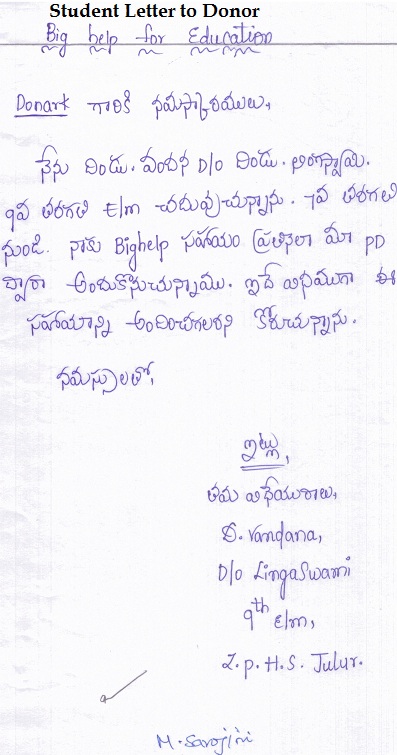 Student Letter to Donor
Big help for Education
Donark గారికి నమస్కారములు,
నేను దిండు. వందన D/o దిండు. లింగస్వామి.
9వ తరగతి E/m చదువుచున్నాను. 7వ తరగతి
నుండి. నాకు Bighelp సహాయం ప్రతినెలా మా PD
ద్వారా అందుకొనుచున్నాము. ఇదే విధముగా ఈ
సహాయాన్ని అందించగలరని కోరుచున్నాను.
నమస్సులతో,
ఇట్లు,
తమ విధేయురాలు,
D. Vandana,
D/o LingaSwami
9th E/m,
Z.P.H.S. Julur.
M. Sarojini